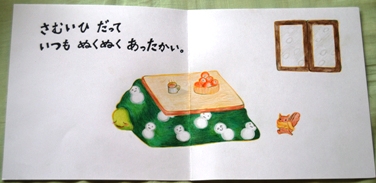 さむいひ だって
いつも ぬくぬく あったかい。